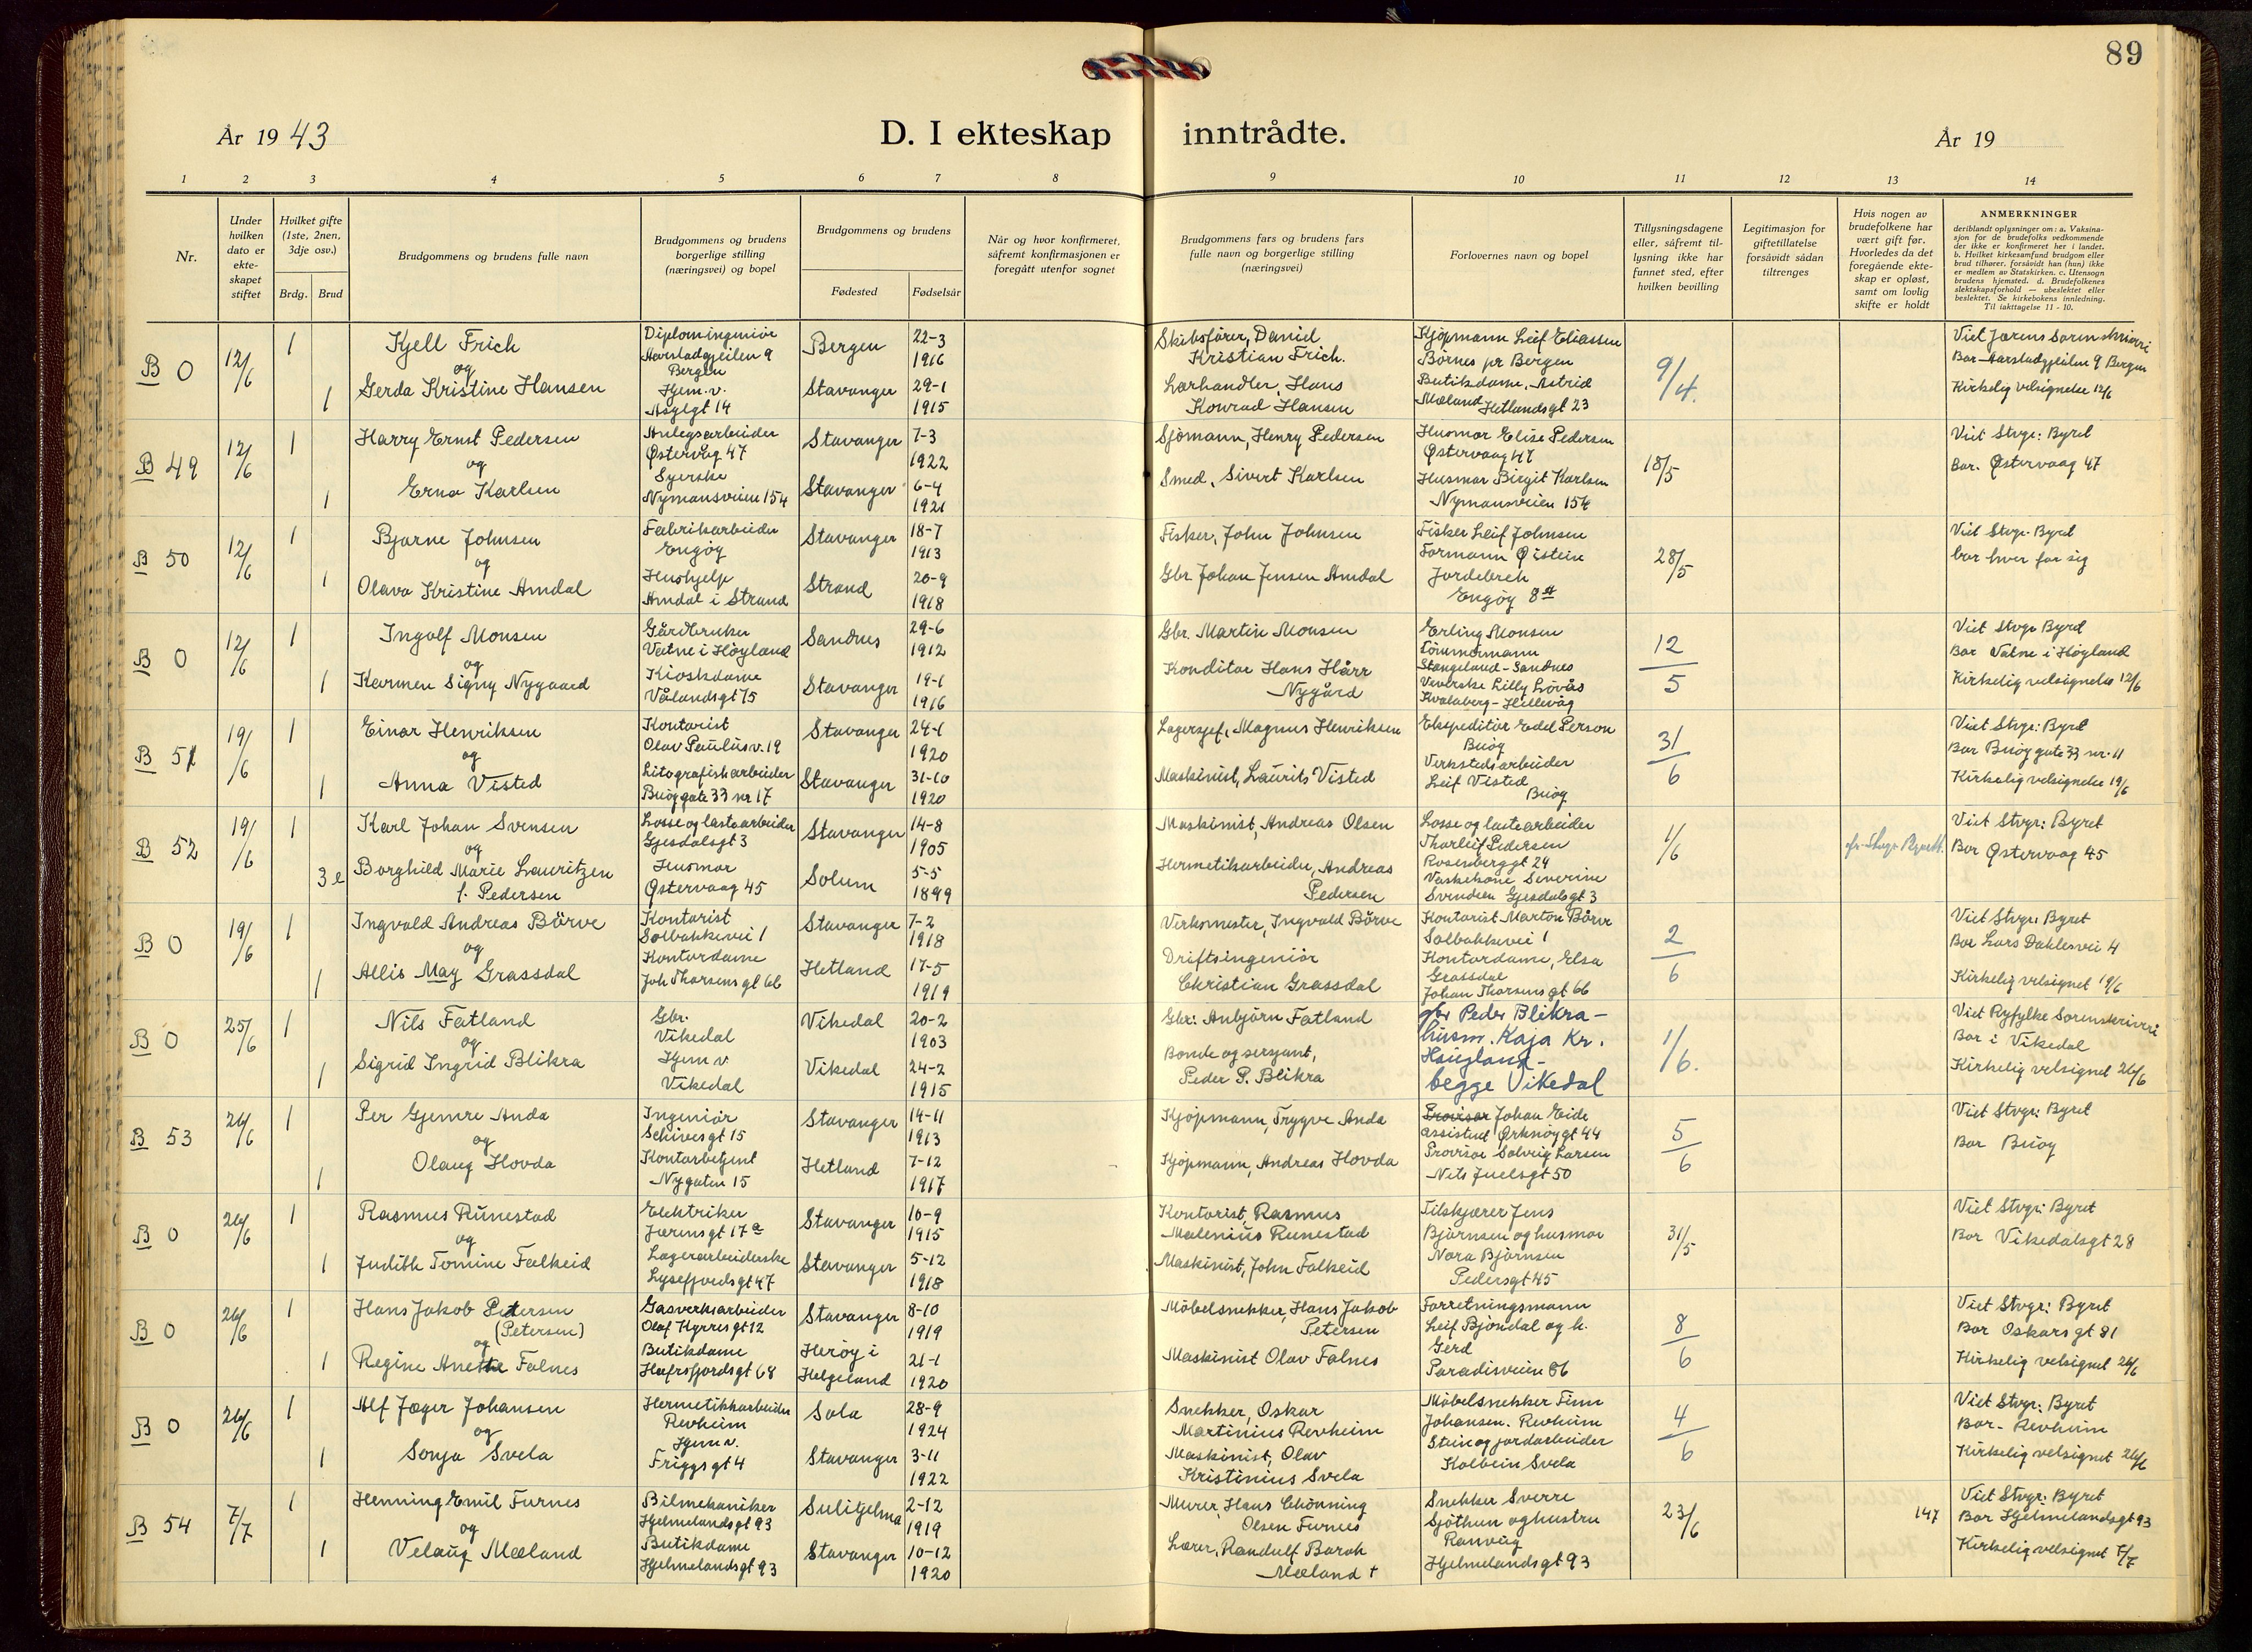 89
År 19 43
D. I ekteskap inntrådte.
År 19
1 2 3 4 5 6 7 8 9 10 11 12 13 14
Nr.
Under hvilken dato er ekte-skapet stiftet
Hvilket gifte (1ste, 2nen, 3dje osv.)
Brdg. Brud
Brudgommens og brudens fulle navn
Brudgommens og brudens borgerlige stilling (næringsvei) og bopel
Brudgommens og brudens
Fødested Fødselsår
Når og hvor konfirmeret, såfremt konfirmasjonen er foregått utenfor sognet
Brudgommens fars og brudens fars fulle navn og borgerlige stilling (næringsvei)
Forlovernes navn og bopel
Tillysningsdagene eller, såfremt til-lysning ikke har funnet sted, efter hvilken bevilling
Legitimasjon for giftetillatelse forsåvidt sådan tiltrenges
Hvis nogen av brudefolkene har vært gift før. Hvorledes da det foregående ekte-skap er opløst, samt om lovlig skifte er holdt
ANMERKNINGER
deriblandt oplysninger om: a. Vaksina-sjon for de brudefolks vedkommende der ikke er konfirmeret her i landet. b. Hvilket kirkesamfund brudgom eller brud tilhører, forsåvidt han (hun) ikke er medlem av Statskirken. c. Utensogn brudens hjemsted. d. Brudefolkenes slektskapsforhold — ubeslektet eller beslektet. Se kirkebokens innledning. Til iakttagelse 11 - 10.
B 0 12/6 1 Kjell Frich
og
1 Gerda Kristine Hansen
Diplomingeniør
Aarstadgjeilen 9
Bergen
Hjem. v.
Asylgt 14
Bergen 22-3 1916
Stavanger 29-1 1915
Skibsfører, Daniel
Kristian Frich.
Lærhandler, Hans
Konrad Hansen
Kjøpmann Leif Eliassen
Børnes pr Bergen
Butikdame, Astrid
Mæland Hetlandsgt 23
9/4.
Viet Jærens Sorenskriveri
Bor Aarstadgjeilen 9 Bergen
Kirkelig velsignelse 12/6
B 49 12/6 1 Harry Ernst Pedersen
og
1 Erna Karlsen
Anlegsarbeider
Østervåg 47
Syerske
Nymansveien 154
Stavanger 7-3 1922
Stavanger 6-4 1921
Sjømann, Henry Pedersen
Smed, Sivert Karlsen
Husmor Elise Pedersen
Østervaag 47
Husmor Birgit Karlsen
Nymansveien 154
18/5
Viet Stvgr: Byret
Bor. Østervaag 47
B 50 12/6 1 Bjarne Johnsen
og
1 Olava Kristine Amdal
Fabrikarbeider
Engøy
Hushjelp
Amdal i Strand
Stavanger 18-7 1913
Strand 20-9 1918
Fisker, John Johnsen
Gbr. Johan Jensen Amdal
Fisker Leif Johnsen
Formann Øistein
Jordebrek
Engøy 8
28/5
Viet Stvgr. Byret
bor hver for sig
B 0 12/6 1 Ingolf Monsen
og
1 Karmen Signy Nygaard
Gårdbruker
Vatne i Høyland
Kioskdame
Vålandsgt 75
Sandnes 29-6 1912
Stavanger 19-1 1916
Gbr. Martin Monsen
Konditor Hans Hårr
Nygård
Erling Monsen
Tømmermann
Stangeland - Sandnes
Veverske Lilly Løvås
Kvaleberg - Hillevåg
12/5
Viet Stvgr Byret
Bor Vatne i Høyland
Kirkelig velsignelse 12/6
B 51 19/6 1 Einar Henriksen
og
1 Anna Visted
Kontorist
Olav Paulus v. 19
Litografiskarbeider
Buøygate 33 nr 17
Stavanger 24-1 1920
Stavanger 31-10 1920
Lagersjef, Magnus Henriksen
Maskinist, Laurits Visted
Ekspeditør Edel Person
Buøy
Verkstedsarbeider
Leif Visted
Buøy
31/6
Viet Stvgr: Byret
Bor Buøygate 33 nr. 11
Kirkelig velsignelse 19/6
B 52 19/6 1 Karl Johan Svensen
og
3 e Borghild Marie Lauritzen
f. Pedersen
Losse og lastearbeider
Gjesdalsgt 3
Husmor
Østervaag 45
Stavanger 14-8 1905
Solum 5-5 1899
Maskinist, Andreas Olsen
Hermetikarbeider, Andreas
Pedersen
Losse og lastearbeider
Thorleif Pedersen
Rosenberggt 24
Vaskekone Severine
Svendsen Gjesdalsgt 3
1/6
Viet Stvgr: Byret
Bor Østervaag 45
B 0 19/6 1 Ingvald Andreas Børve
og
1 Allis May Grassdal
Kontorist
Solbakkevei 1
Kontordame
Joh Thorsensgt 66
Stavanger 7-2 1918
Hetland 17-5 1919
Verksmester, Ingvald Børve
Driftsingeniør
Christian Grassdal
Kontorist Marton Børve
Solbakkevei 1
Kontordame, Elsa
Grassdal
Johan Thorsensgt 66
2/6
Viet Stvgr: Byret
Bor Lars Dahlesvei 4
Kirkelig velsignet 19/6
B 0 25/6 1 Nils Fatland
og
1 Sigrid Ingrid Blikra
Gbr.
Vikedal
Hjem v
Vikedal
Vikedal 20-2 1903
Vikedal 24-2 1915
Gbr: Anbjørn Fatland
Bonde og sersjant,
Peder P. Blikra
gbr Peder Blikra -
husm. Kaja Kr.
Haugland -
begge Vikedal
1/6.
Viet Ryfylke Sorenskriveri
Bor i Vikedal
Kirkelig velsignet 26/6
B 53 26/6 1 Per Gjemre Anda
og
1 Olaug Hovda
Ingeniør
Schivesgt 15
Kontorbetjent
Nygaten 15
Stavanger 14-11 1913
Hetland 7-12 1917
Kjøpmann, Trygve Anda
Kjøpmann, Andreas Hovda
Provisor Johan Eide
assistent Ørknøygt 44
Provisor Solveig Larsen
Nils Juelsgt 50
5/6
Viet Stvgr: Byret
Bor Buøy
B 0 26/6 1 Rasmus Runestad
og
1 Judith Tomine Falkeid
Elektriker
Jærensgt 17a
Lagerarbeiderske
Lysefjordsgt 47
Stavanger 10-9 1915
Stavanger 5-12 1918
Kontorist, Rasmus
Malenius Runestad
Maskinist, John Falkeid
Tilskjærer Jens
Bjørnsen og husmor
Nora Bjørnsen
Pedersgt 45
31/5
Viet Stvgr: Byret
Bor Vikedalsgt 28
B 0 26/6 1 Hans Jakob Petersen
(Petersen)
og
1 Regine Anette Falnes
Gasverksarbeider
Olaf Kyrresgt 12
Butikdame
Hafrsfjordsgt 68
Stavanger 8-10 1919
Herøy i Helgeland 21-1 1920
Møbelsnekker, Hans Jakob
Petersen
Maskinist Olav Falnes
Forretningsmann
Leif Bjøndal og h.
Gerd
Paradisveien 86
8/6
Viet Stvgr: Byret
Bor Oskarsgt 81
Kirkelig velsignet 26/6
B 0 26/6 1 Alf Jæger Johansen
og
1 Sonja Svela
Hermetikkarbeider
Revheim
Hjem v.
Friggsgt 4
Sola 28-9 1924
Stavanger 3-11 1922
Snekker, Oskar
Martinius Revheim
Maskinist, Olav
Kristinius Svela
Møbelsnekker Finn
Johansen. Revheim
Stein og jordarbeider
Kolbein Svela
4/6
Viet Stvgr: Byret
Bor - Revheim
Kirkelig velsignet 26/6
B 54 7/7 1 Henning Emil Furnes
og
1 Velaug Mæland
Bilmekaniker
Hjelmelandsgt 93
Butikdame
Hjelmelandsgt 93
Sulitjelma 2-12 1919
Stavanger 10-12 1920
Murer, Hans Chönning
Olsen Furnes
Lærer, Randulf Barok
Mæland †
Snekker Sverre
Sjøthun og hustru
Ranveig
Hjelmelandsgt 93
23/6
147
Viet Stvgr: Byret
Bor Hjelmelandsgt 93
Kirkelig velsignet 7/7